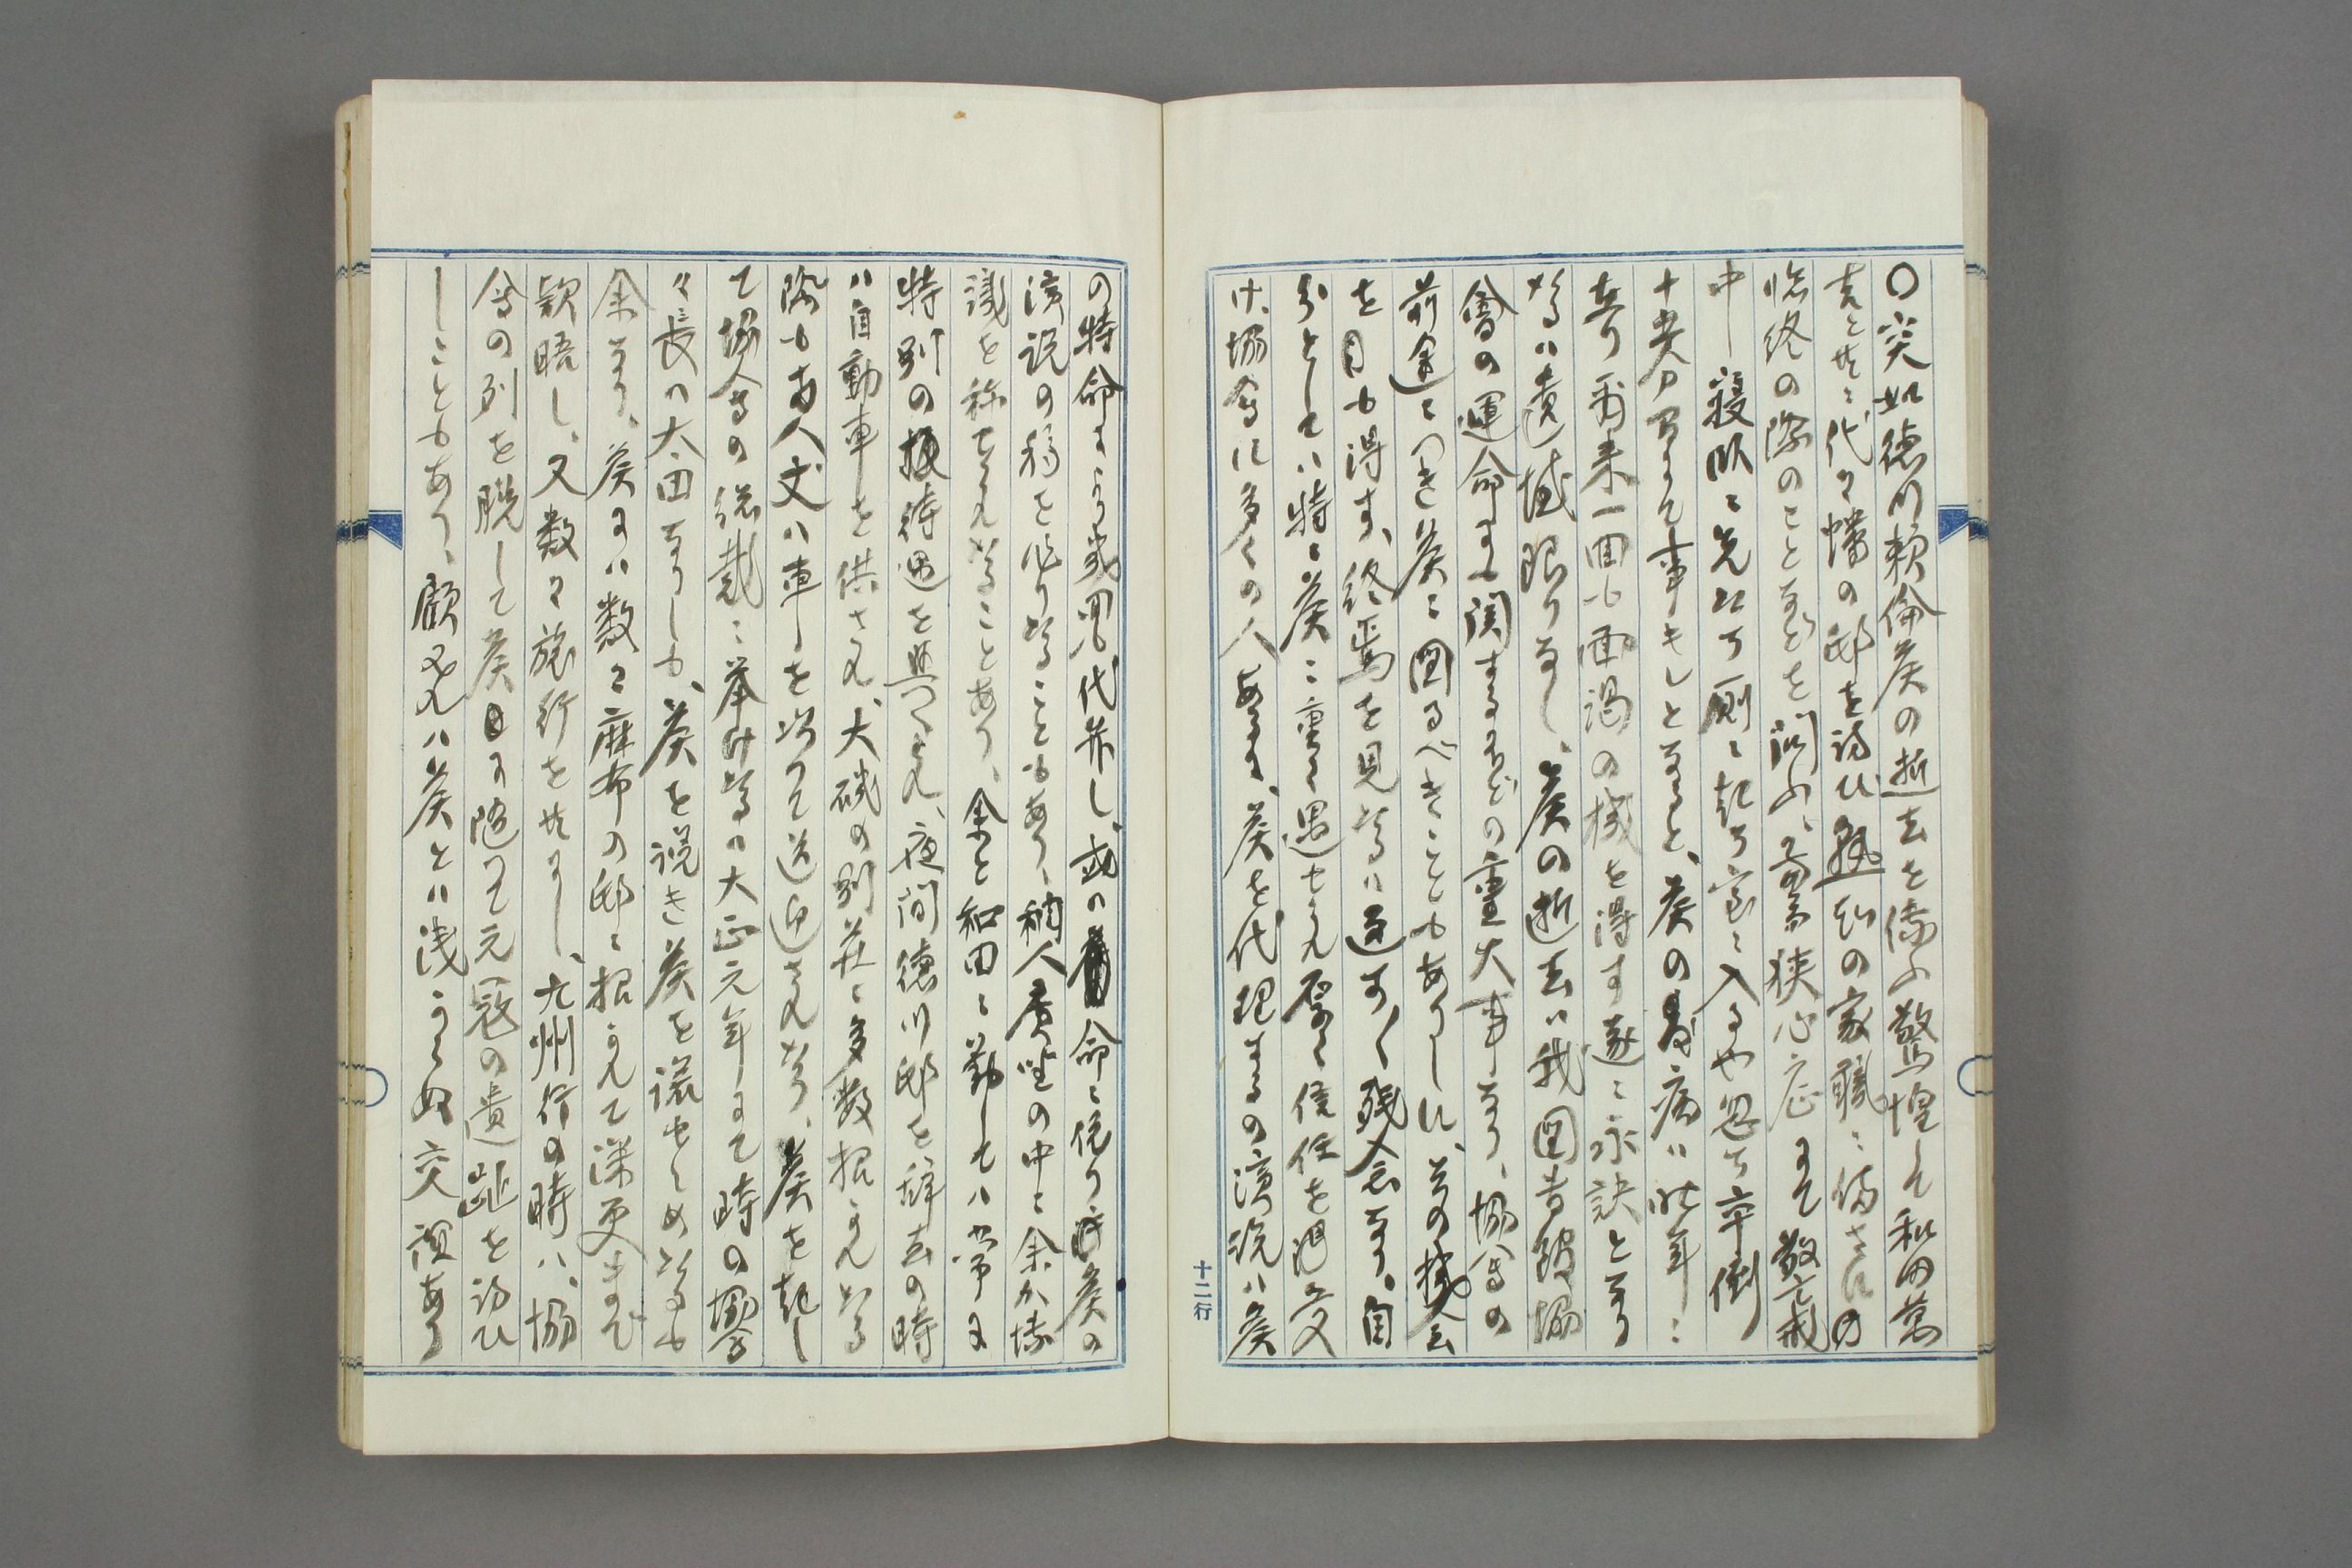 〇突如徳川頼倫侯の逝去を伝ふ驚惶して和田萬
吉と共に代々幡の邸を訪ひ熟知の家職に備さに
臨終の際のことなどを問ふ、病ハ狭心症にて散策
中し寝臥に先ち廁に起ち室に入るや忽ち卒倒
十数分にして事もしとなると、侯の病ハ昨年に
ありて爾来一回も面謁の機を得す遂に永訣となり
ハ遺憾限りなし、侯の逝去ハ我図書館協
會の運命にも関するほどの重大事なり、協会の
前途につき侯に図るべきこともありしに、その機会
を得す、終焉を見るハ返すく残念なり、自
分としてハ特に侯に重く遇せられ厚く信任を受
け、協会に多くの人あるに、侯を代理するの演説ハ侯
の特命により幾回代弁し、或の命に依り侯の
演説の稿を作りことあり、稠人廣坐の中に余か
議を称せられことあり、余と和田に対してハ常に
特別の接待遇を与へられ、夜間徳川邸を辞去の時
ハ自動車を供され、大磯の別荘に多数招かれ
際も両人丈ハ車を以て送迎され、侯を起し
て協会の総裁に挙けハ大正元年にて時の協会
々長ハ太田なりしか、侯を説き侯を諾せしめも
余なり、侯にハ数々麻布の邸に招かれて深更まで
款晤し、又数々旅行を共にし、九州行の時ハ、協
会の列を脱して侯に随つて元寇の遺趾を訪ひ
しこともあり、顧みれハ侯とハ浅からぬ交誼あり
十二行